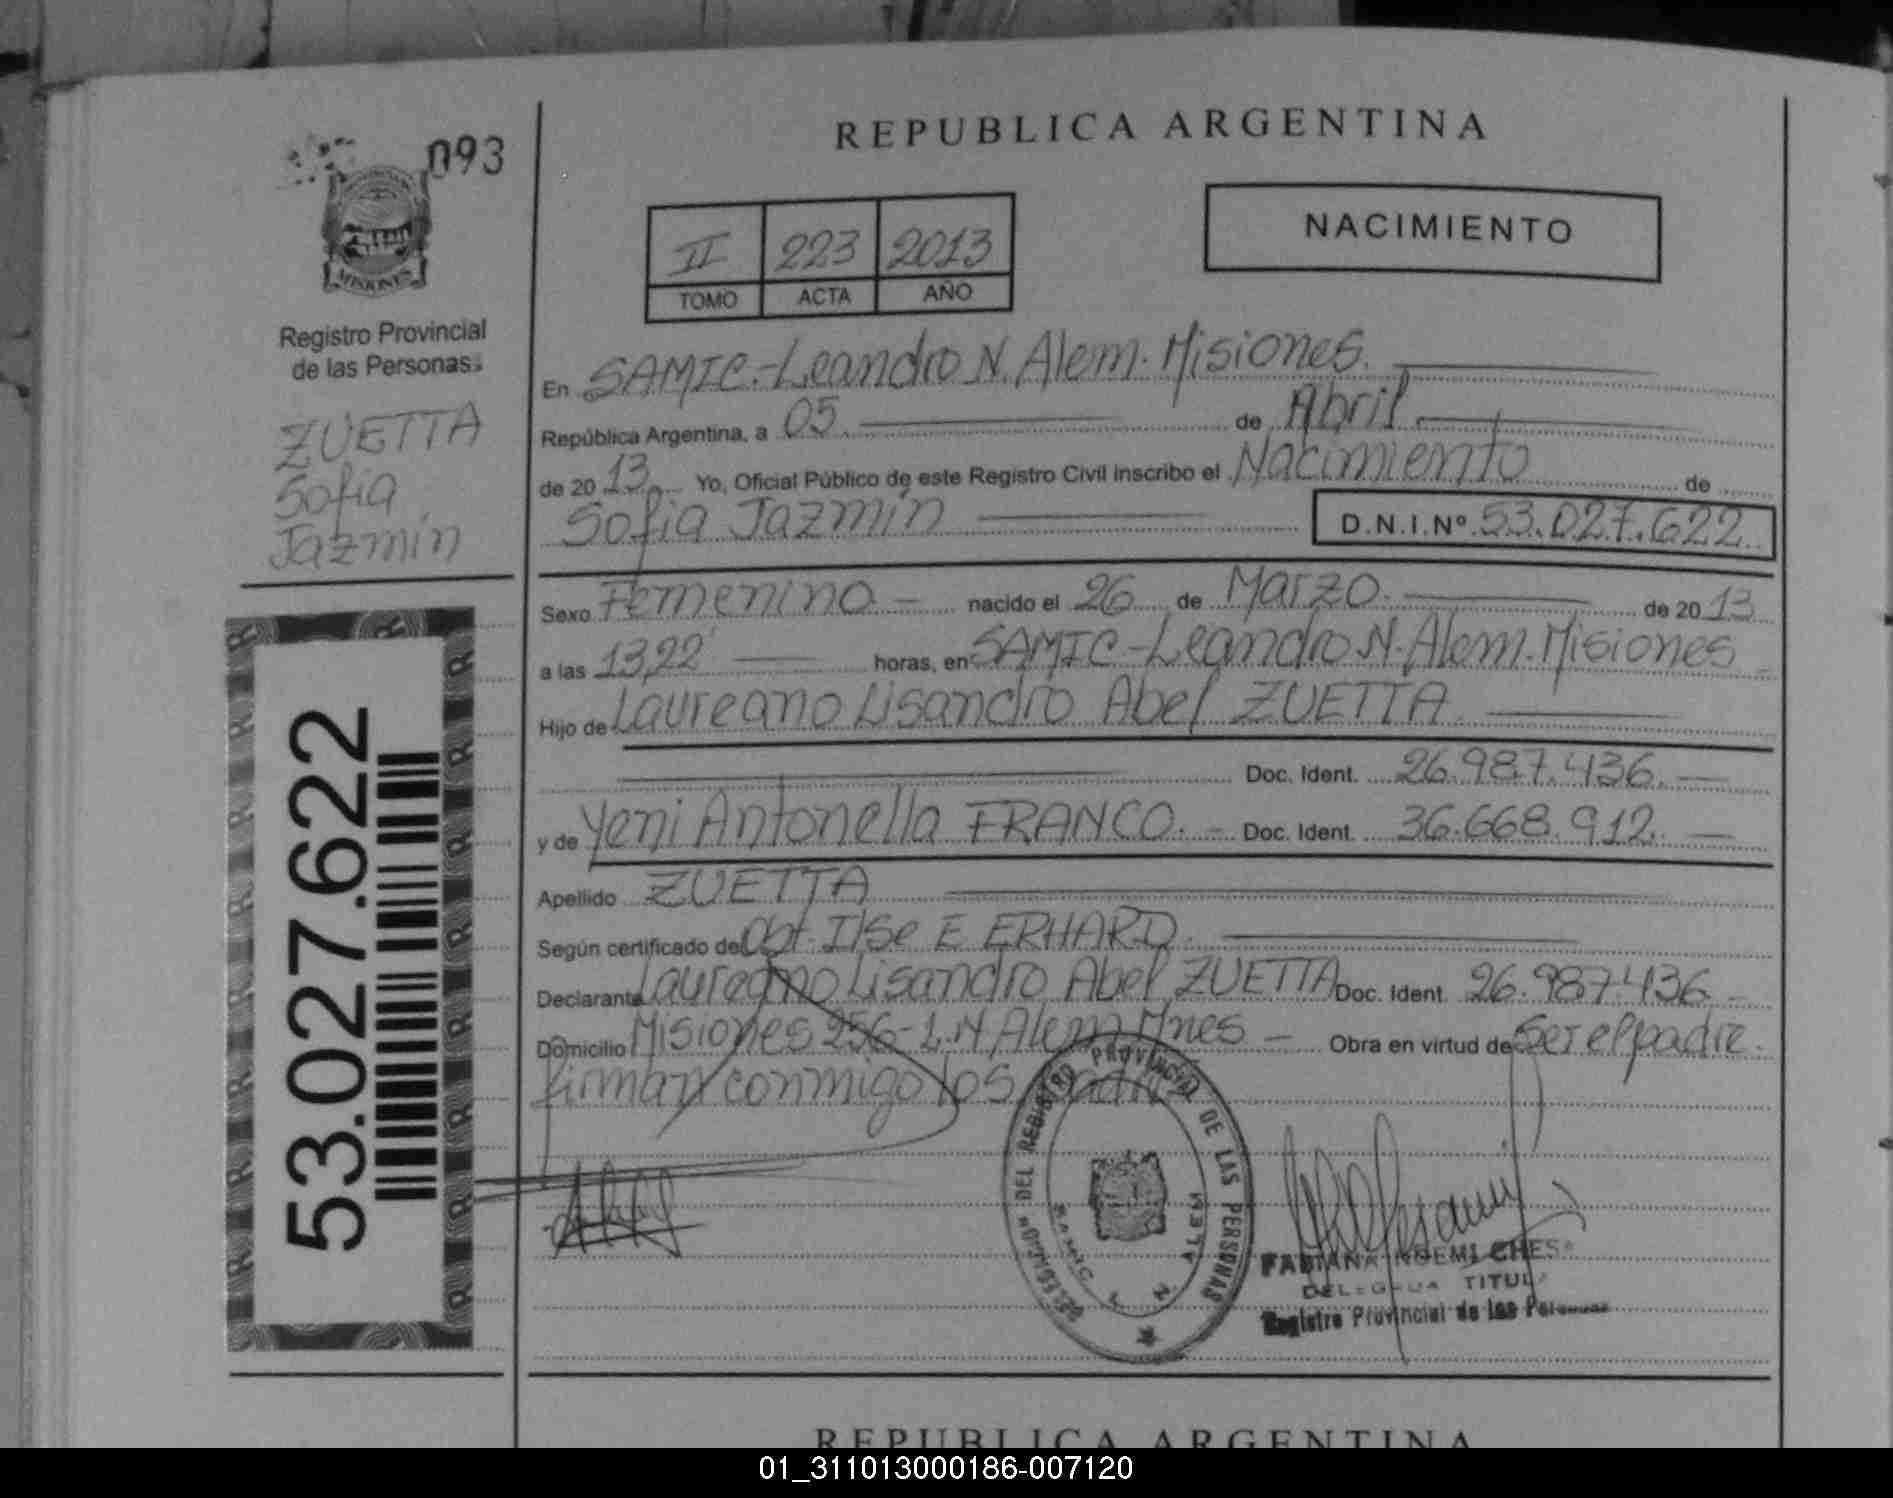 093
MISIONES
Registro Provincial
de las Personas
ZUETTA
Sofia
Jazmín
53.027.622
REPUBLICA ARGENTINA
II 223 2013
TOMO ACTA AÑO
NACIMIENTO
En SAMIC-Leandro N. Alem-Misiones.
República Argentina, a 05 de Abril
de 2013 Yo, Oficial Público de este Registro Civil inscribo el Nacimiento de
Sofia Jazmín D.N.I.Nº 53.027.622
Sexo Femenino nacido el 26 de Marzo de 2013
a las 13,22' horas, en SAMIC-Leandro N. Alem-Misiones
Hijo de Laureano Lisandro Abel ZUETTA
Doc. Ident. 26.987.436.
y de Yeni Antonella FRANCO. Doc. Ident. 36.668.912.
Apellido ZUETTA
Según certificado de Obt. Ilse E ERHARD.
Declarante Laureano Lisandro Abel ZUETTA Doc. Ident. 26.987.436
Domicilio Misiones 256-L.N Alem-Mnes Obra en virtud de ser el padre.
firman conmigo los
PROVINCIAL DE LAS PERSONAS
DEL REGISTRO
N ALEM
FABIANA NOEMI
Registro Provincial de las
REPUBLICA ARGENTINA
01_311013000186-007120